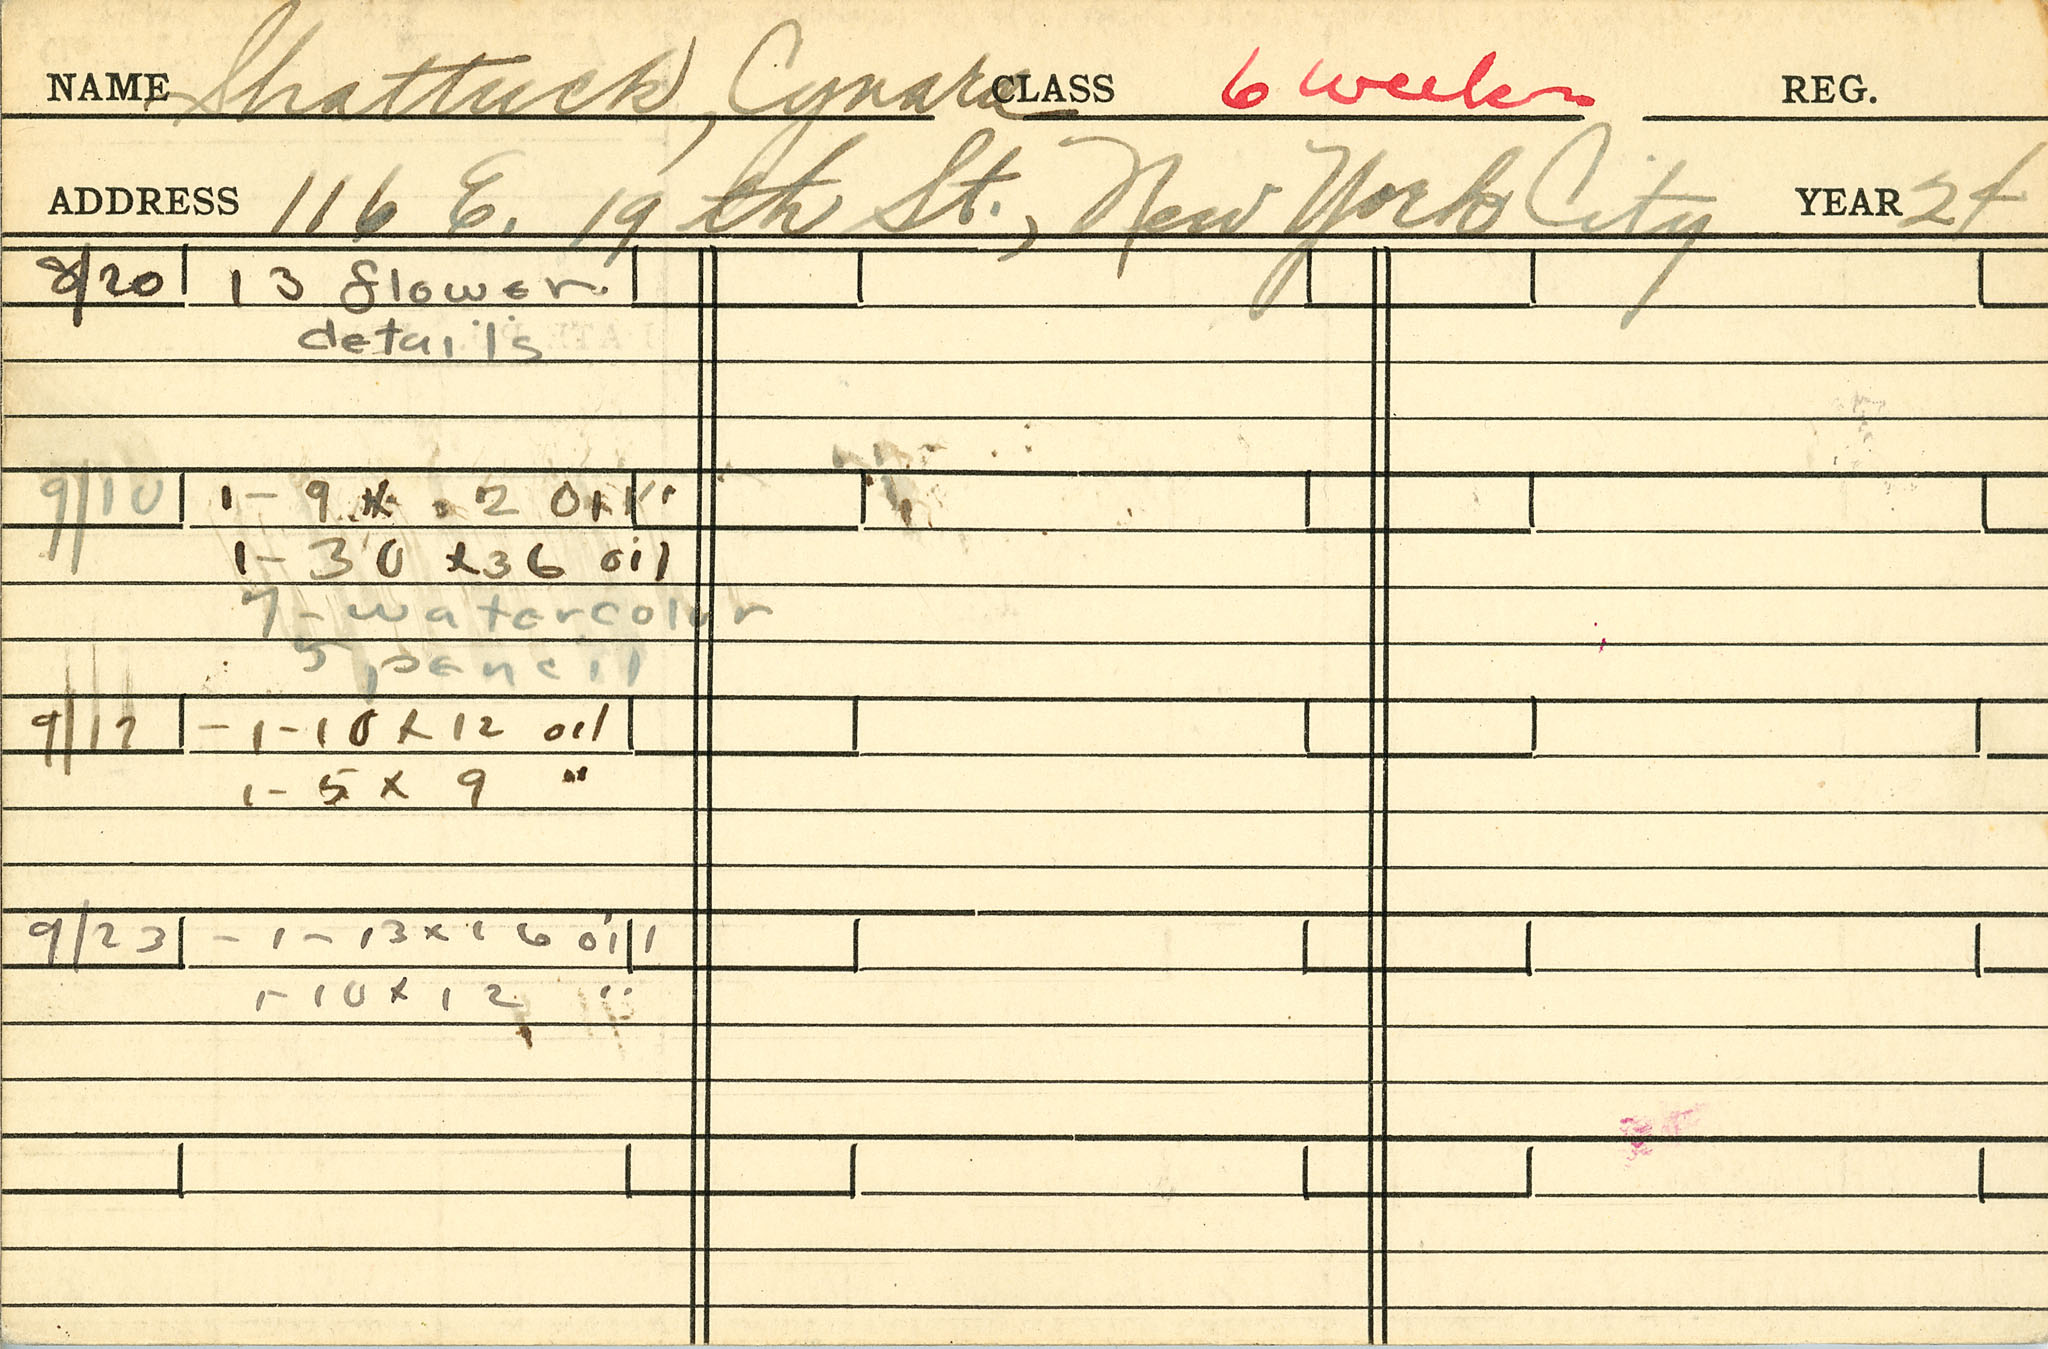 NAME Shattuck, Cynara CLASS 6 weeks REG.
ADDRESS 116 E. 19th St., New York City YEAR 24
8/20 13 flower
details
9/10 1- 9 x 12 oil
1- 30 x 36 oil
7- watercolor
5 pencil
9/17 - 1-10 x 12 oil
1- 5 x 9 "
9/23 - 1- 13 x 16 oil
1- 10 x 12 "